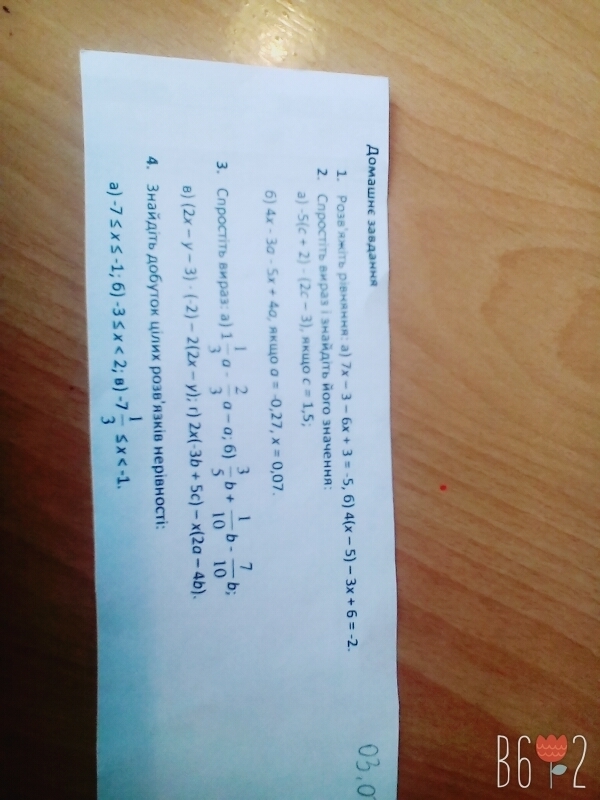 Домашнє завдання
1. Розв'яжіть рівняння: а) 7x – 3 – 6x + 3 = -5, б) 4(x – 5) – 3x + 6 = -2.
2. Спростіть вираз і знайдіть його значення:
а) -5(c + 2) - (2c – 3), якщо c = 1,5;
б) 4x - 3a - 5x + 4a, якщо a = -0,27, x = 0,07.
3. Спростіть вираз: а) 1 1/3 a - 2/3 a – a; б) 3/5 b + 1/10 b - 7/10 b;
в) (2x – y – 3) · (-2) – 2(2x – y); г) 2x(-3b + 5c) – x(2a – 4b).
4. Знайдіть добуток цілих розв'язків нерівності:
а) -7 ≤ x ≤ -1; б) -3 ≤ x < 2; в) -7 1/3 ≤ x < -1.
03,0
В6 2